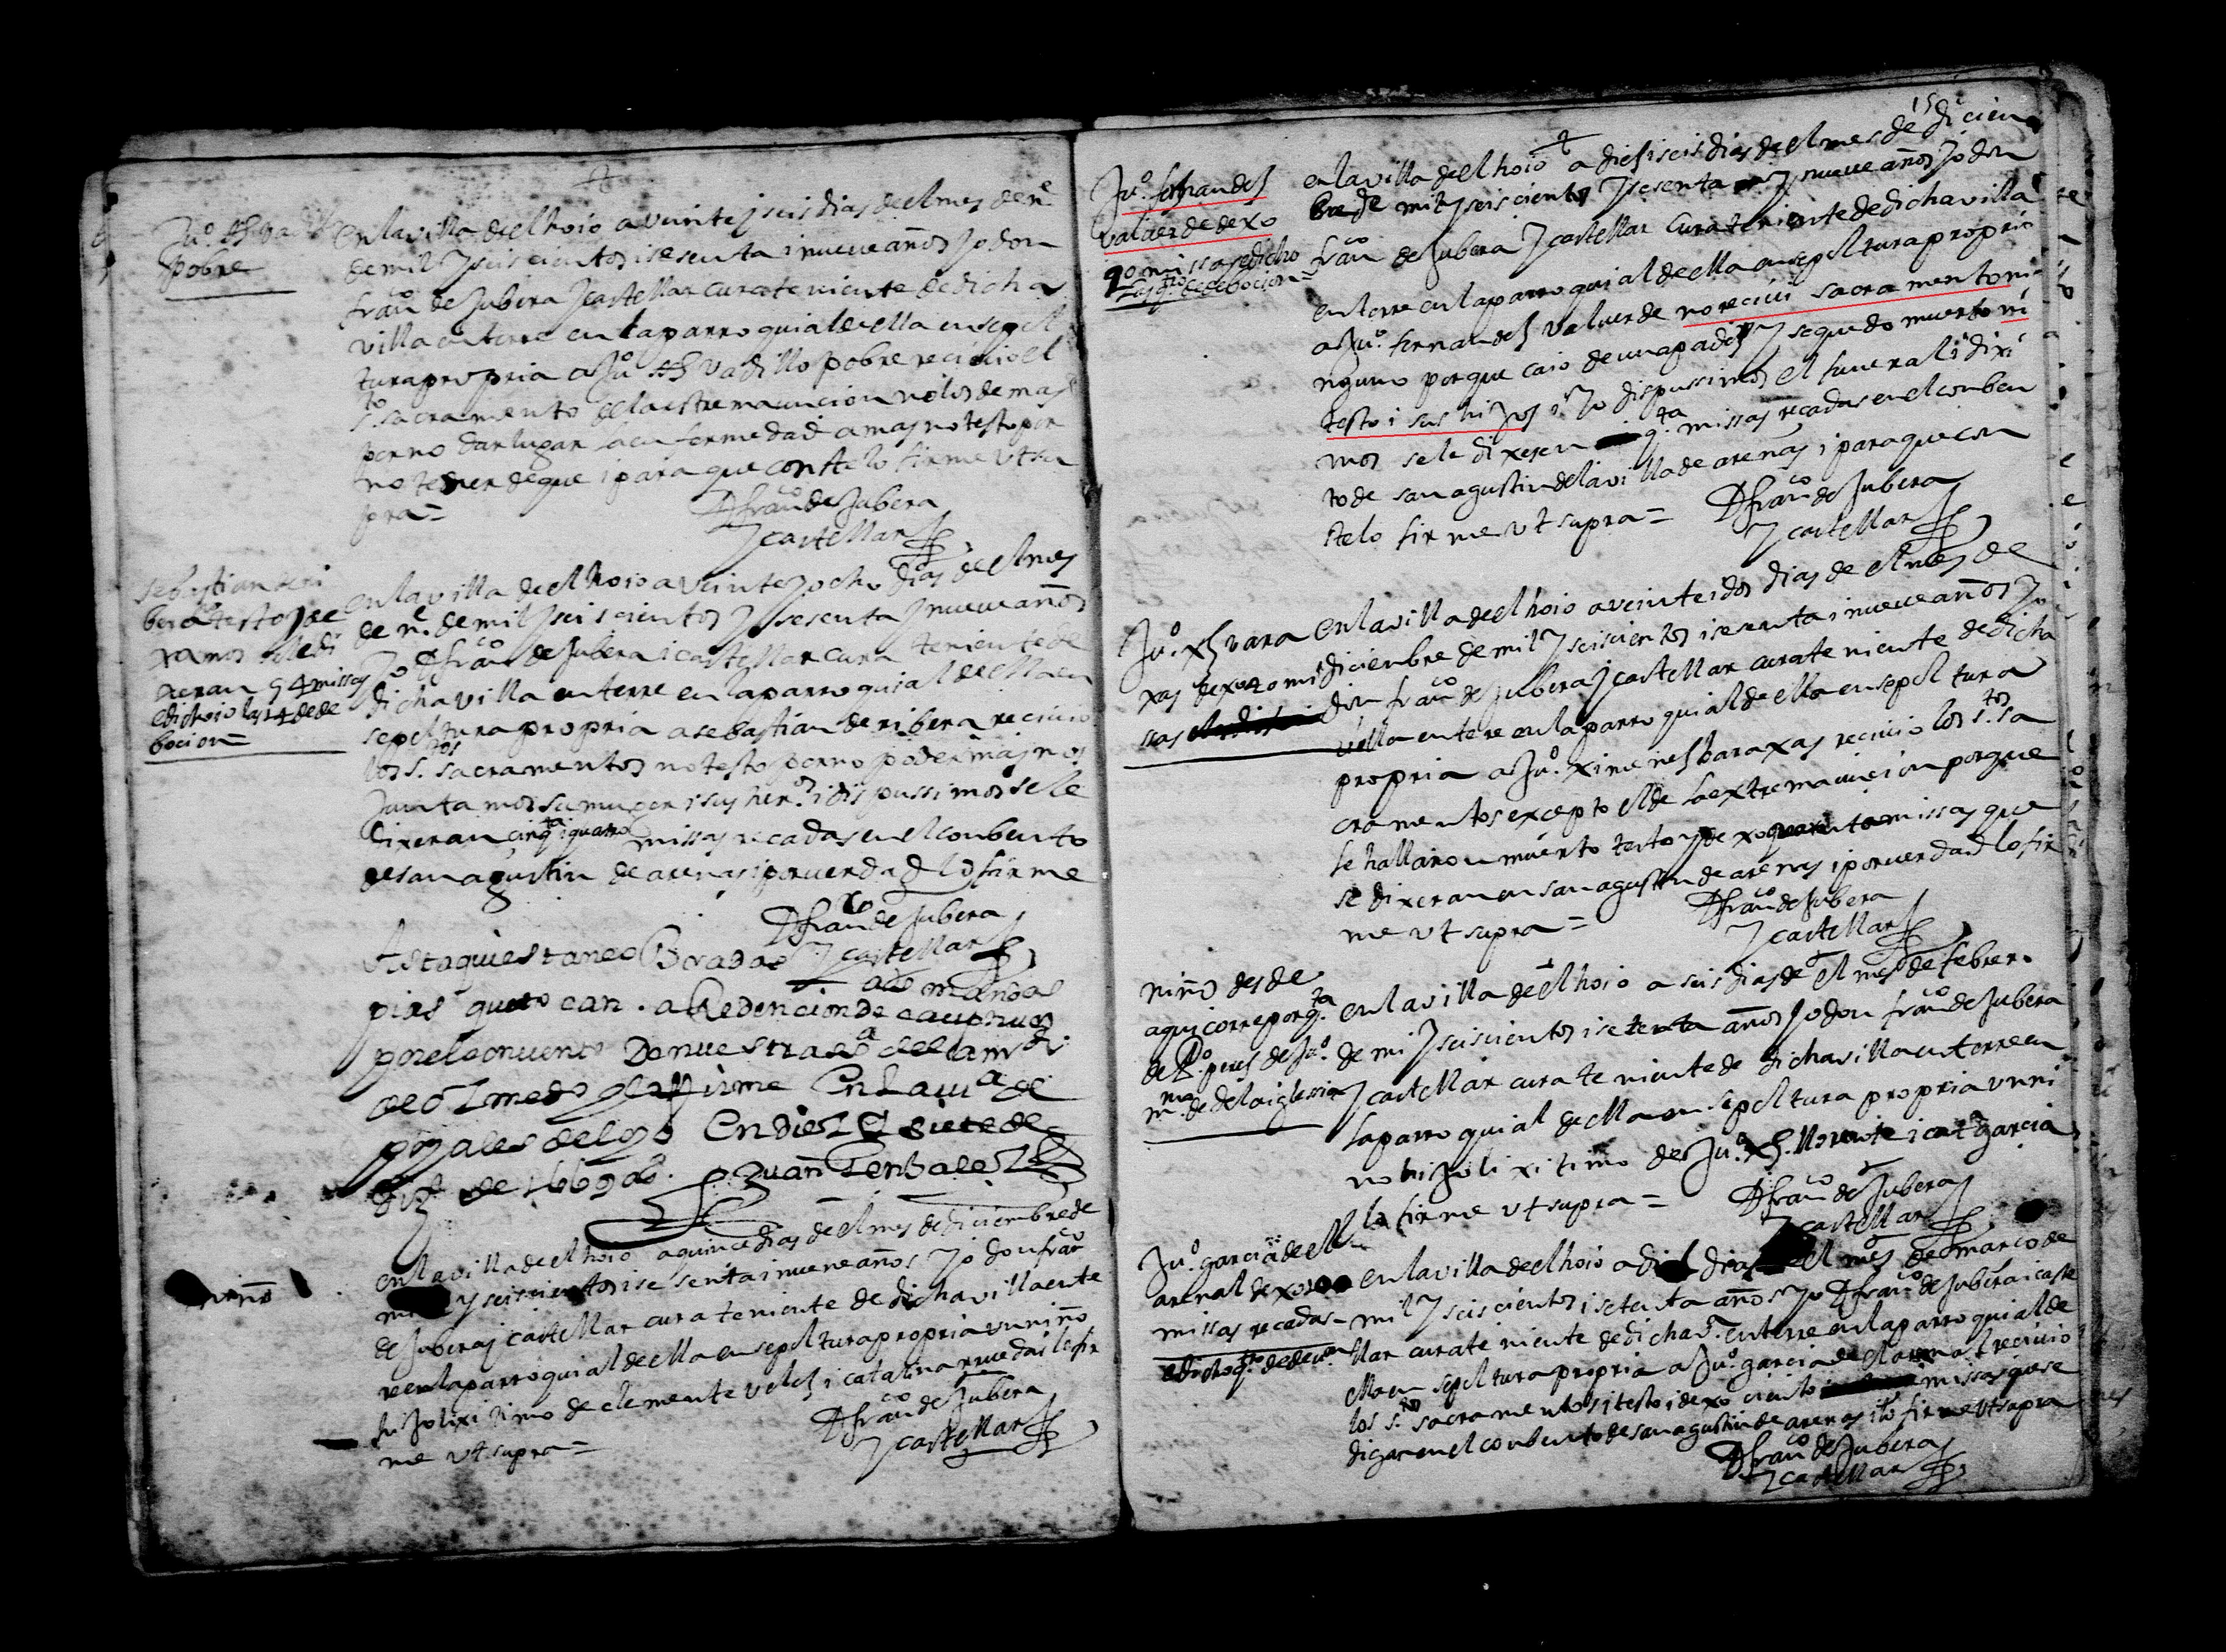 Ju.º
pobre
en la villa de el hoio a veinte y seis dias de el mes de n.e
de mil y seiscientos i sesenta i nueve años yo don
fran.co de Jubera y castellar cura teniente de dicha
villa enterre en la parroquial de ella en sepol
tura propria a Ju.º vadillo pobre recivio el
s.to sacramento de la estremauncion no los demas
por no dar lugar la enfermedad a mas no testo por
no tener de que i para que conste lo firme vt su
pra=
D fran.co de Jubera
y castellar
sebastian de ri
bera testo y de
xamos se le di
xeran 54 missas
e dicho io las 14 de de
bocion=
en la villa de el hoio a veinte y ocho dias de el mes
de n.e de mil y seiscientos y sesenta y nueve años
yo D fran.co de Jubera i castellar cura teniente de
dicha villa enterre en la parroquial de ella en
sepoltura propria a sebastian de ribera recivio
los s.tos sacramentos no testo por no poder mas nos
juntamos su muger i sus her.os i dispussimos se le
dixeran cinq.ta i quatro missas recadas en el conbento
de san agustin de arenas i por verdad lo firme
D fran.co de Jubera
y castellar
Asta qui estan co Bradas las mandas
pias que to can a Redencion de cautivos
por el convento De nuestra s.a de la m.d
de olmedo y la firme En La vi.a de
En diez y siete de
di.e de 1669 a.s Juan Gonzalez
niño
en la villa de el hoio a quince dias de el mes de diciembre de
mil y seiscientos i sesenta i nueve años yo don fran.co
de Jubera y castellar cura teniente de dicha villa ente
rre en la parroquial de ella en sepoltura propria un niño
hijo lixitimo de clemente velez i catalina ruedas lo fir
me vt supra=
D fran.co de Jubera
y castellar
15
Ju.º fernandez
valverde dexo
90 missas e dicho
las q.tro de debocion=
en la villa de el hoio a diez i seis dias de el mes de dicien
bre de mil y seiscientos y sesenta y nueve años yo don
fran.co de Jubera y castellar cura teniente de dicha villa
enterre en la parroquial de ella en sepoltura propria
a Ju.º fernandez valverde no recivi sacramento ni
nguno porque caio de una pared y se quedo muerto ni
testo i sus hijos i yo dispussimos el funeral i dixi
mos se le dixeren q.ta missas recadas en el conben
to de san agustin de la villa de arenas i para que con
ste lo firme vt supra= D fran.co de Jubera
y castellar
Ju.º xz vara
xas dexo 40 mi
ssas
en la villa de el hoio a veinte i dos dias de el mes de
diciembre de mil y seiscientos i sesenta i nueve años yo
don fran.co de Jubera y castellar cura teniente de dicha
villa entere en la parroquial de ella en sepoltura
propria a Ju.º ximenez baraxas recivio los s.tos sa
cramentos excepto el de la extremauncion porque
le hallaron muerto testo y dexo quarenta missas que
se dixeran en san agustin de arenas i por verdad lo fir
me vt supra= D fran.co de Jubera
y castellar
niño desde
aqui corre por q.ta
de P.º perez de Ju.º
m.mo de de la iglesia
en la villa de el hoio a seis dias de el mes de febrer.
de mi y seiscientos i setenta años yo don fran.co de Jubera
y castellar cura teniente de dicha villa enterre en
la parroquial de ella en sepoltura propria un ni
no hijo lixitimo de Ju.º xz. llorente i cat.a garcia
lo firme vt supra= D fran.co de Jubera
y castellar
Ju.º garcia de el
arenal dexo 100
missas recadas
e dicho q.tro de dev.on
en la villa de el hoio a diez dias de el mes de março de
mil y seiscientos i setenta años yo D fran.co de Jubera i caste
llar cura teniente de dicha v.a enterre en la parroquial de
ella en sepoltura propria a Ju.º garcia de el arenal recivio
los s.tos sacramentos i testo i dexo ciento missas que se
digan en el conbento de san agustin de arenas i lo firme vt supra
D fran.co de Jubera
y castellar